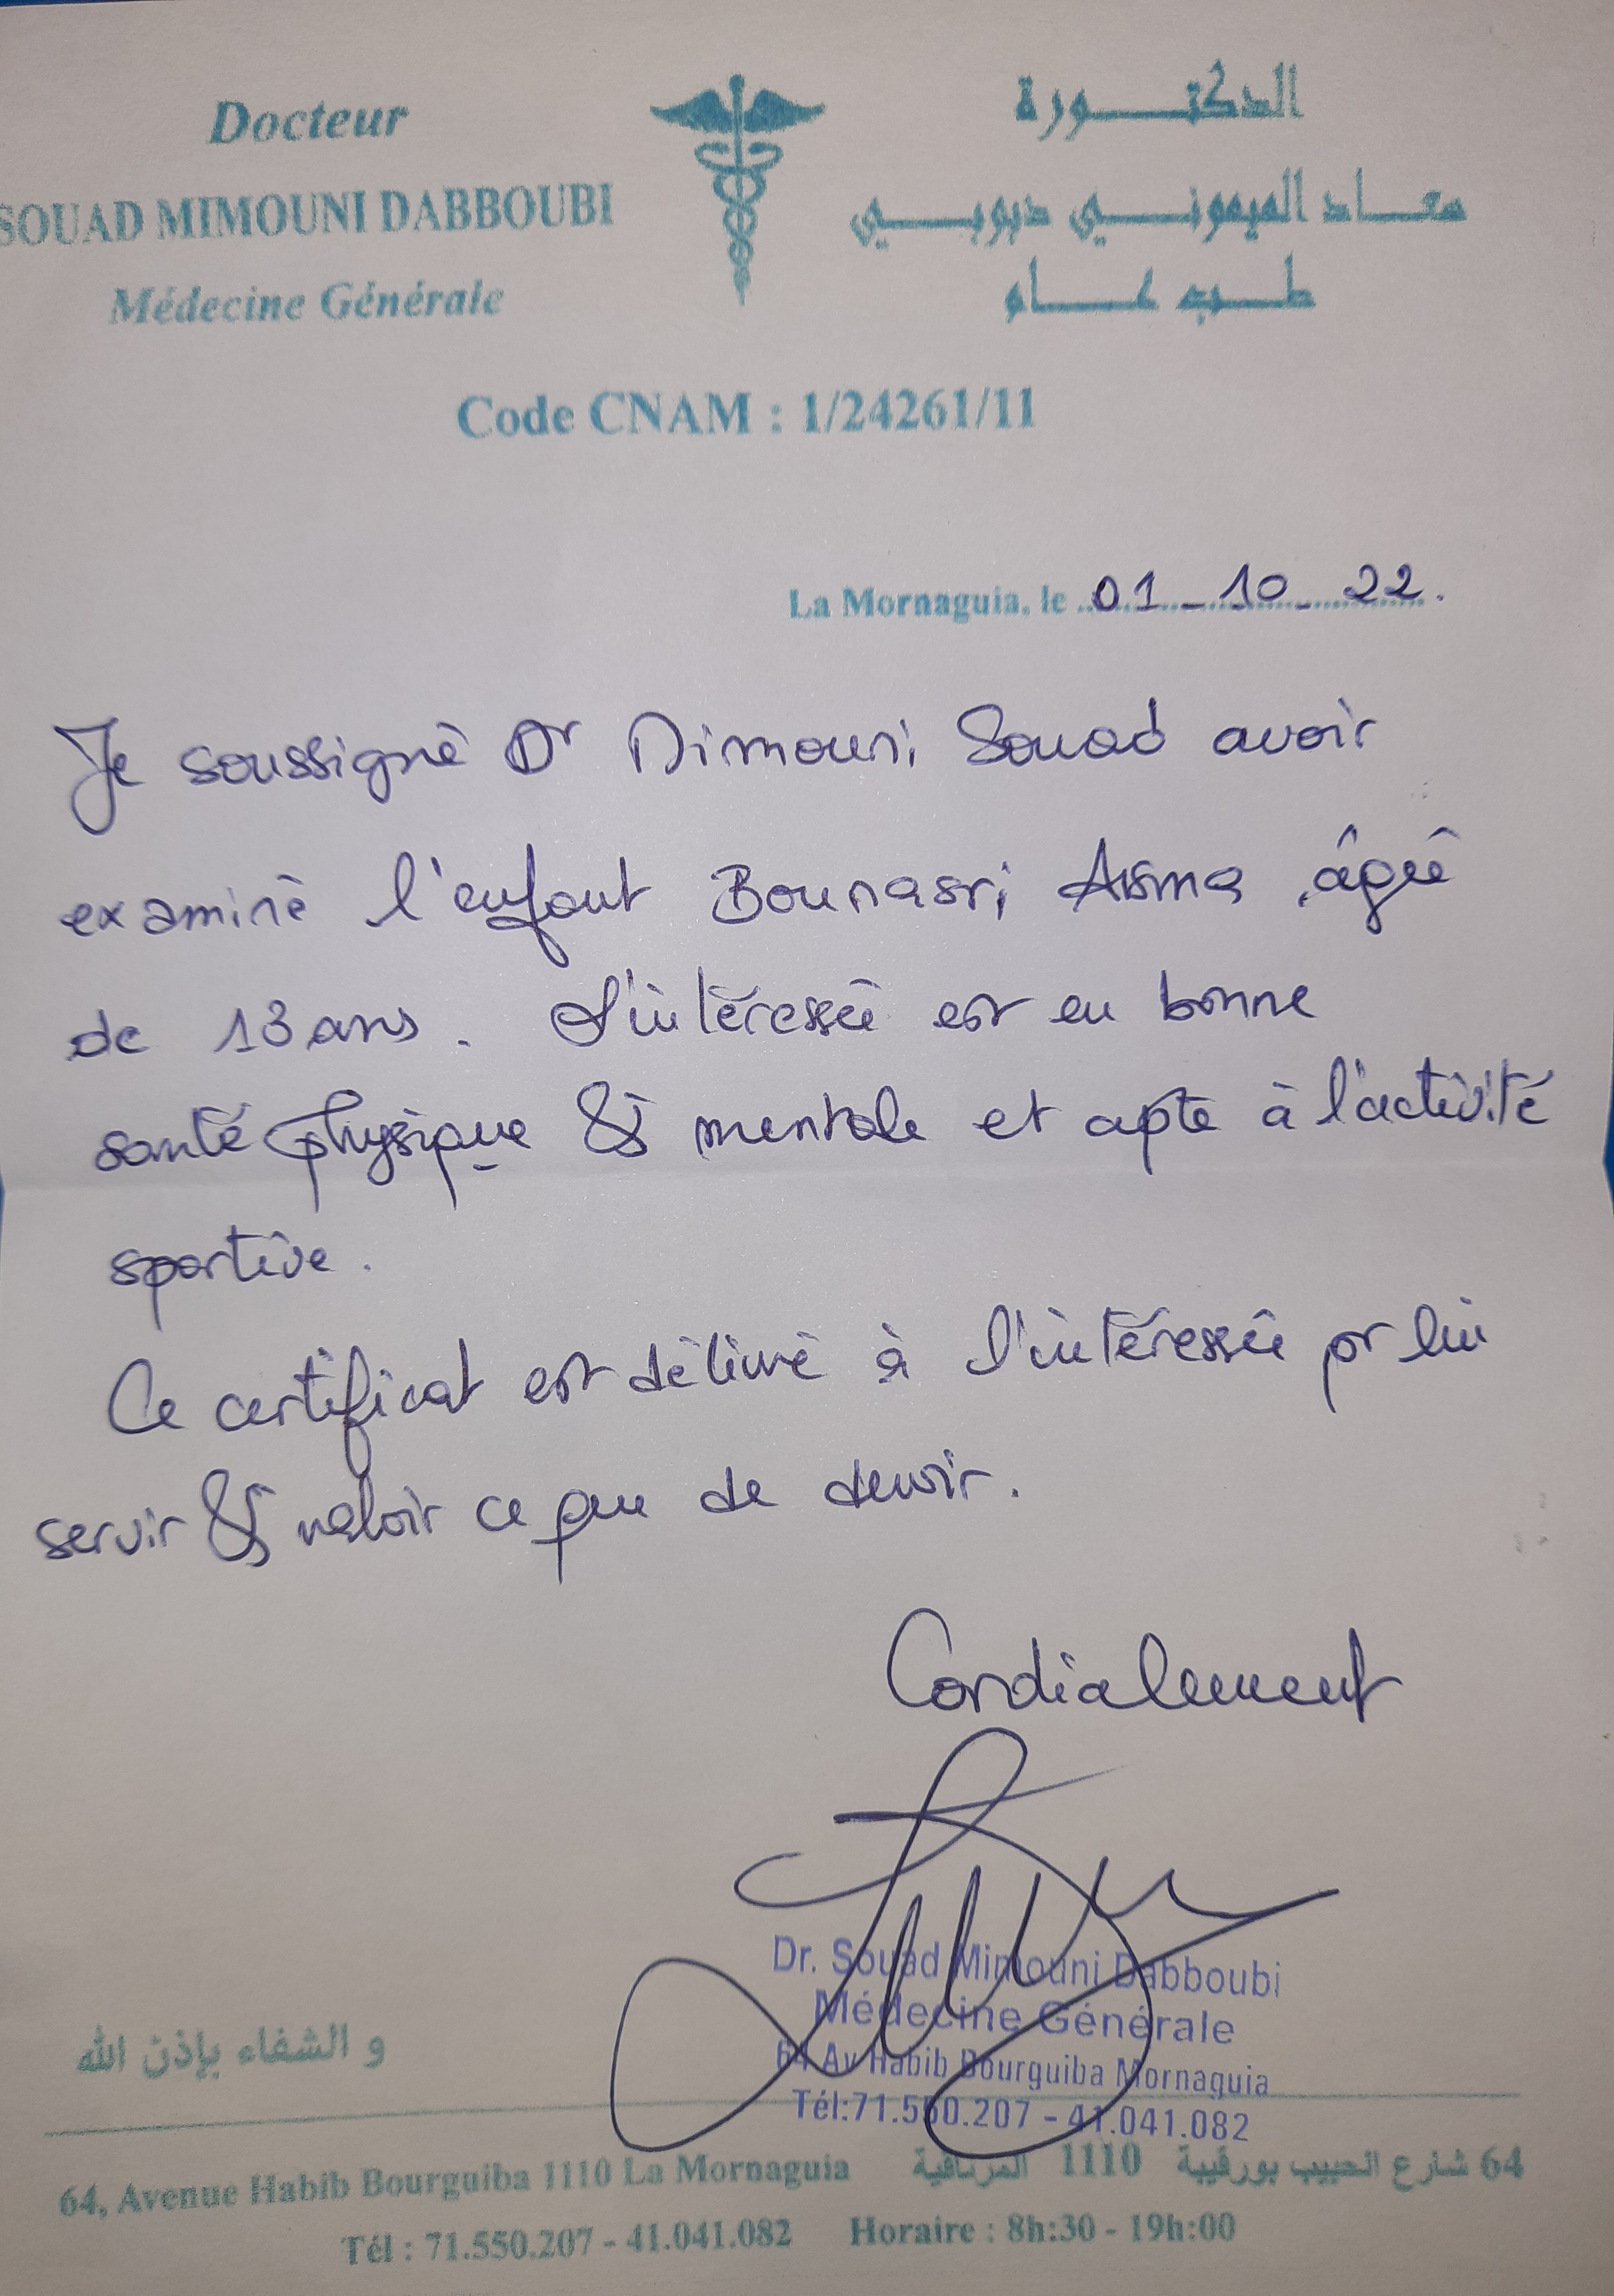 Docteur
SOUAD MIMOUNI DABBOUBI
Médecine Générale
الدكتورة
سعاد الميموني دبوبي
طب عام
Code CNAM : 1/24261/11
La Mornaguia, le 01_10_22.
Je soussigné Dr Mimouni Souad avoir
examiné l'enfant Bounasri Asma âgée
de 13 ans. L'intéressée est en bonne
santé physique & mentale et apte à l'activité
sportive.
Ce certificat est délivré à l'intéressée pr lui
servir & valoir ce que de devoir.
Cordialement
Dr. Souad Mimouni Dabboubi
Médecine Générale
64 Av Habib Bourguiba Mornaguia
Tél:71.550.207 - 41.041.082
و الشفاء بإذن الله
64, Avenue Habib Bourguiba 1110 La Mornaguia
64 شارع الحبيب بورقيبة 1110 المرناقية
Tél : 71.550.207 - 41.041.082 Horaire : 8h:30 - 19h:00